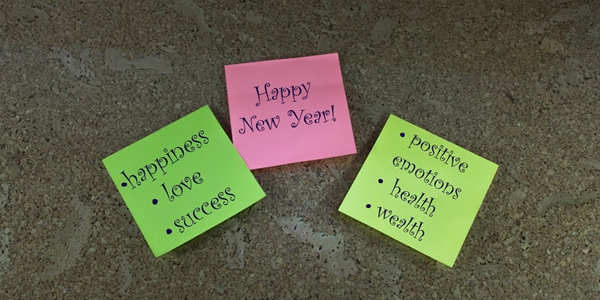 Happy
New Year!
• happiness
• love
• success
• positive
emotions
• health
• wealth